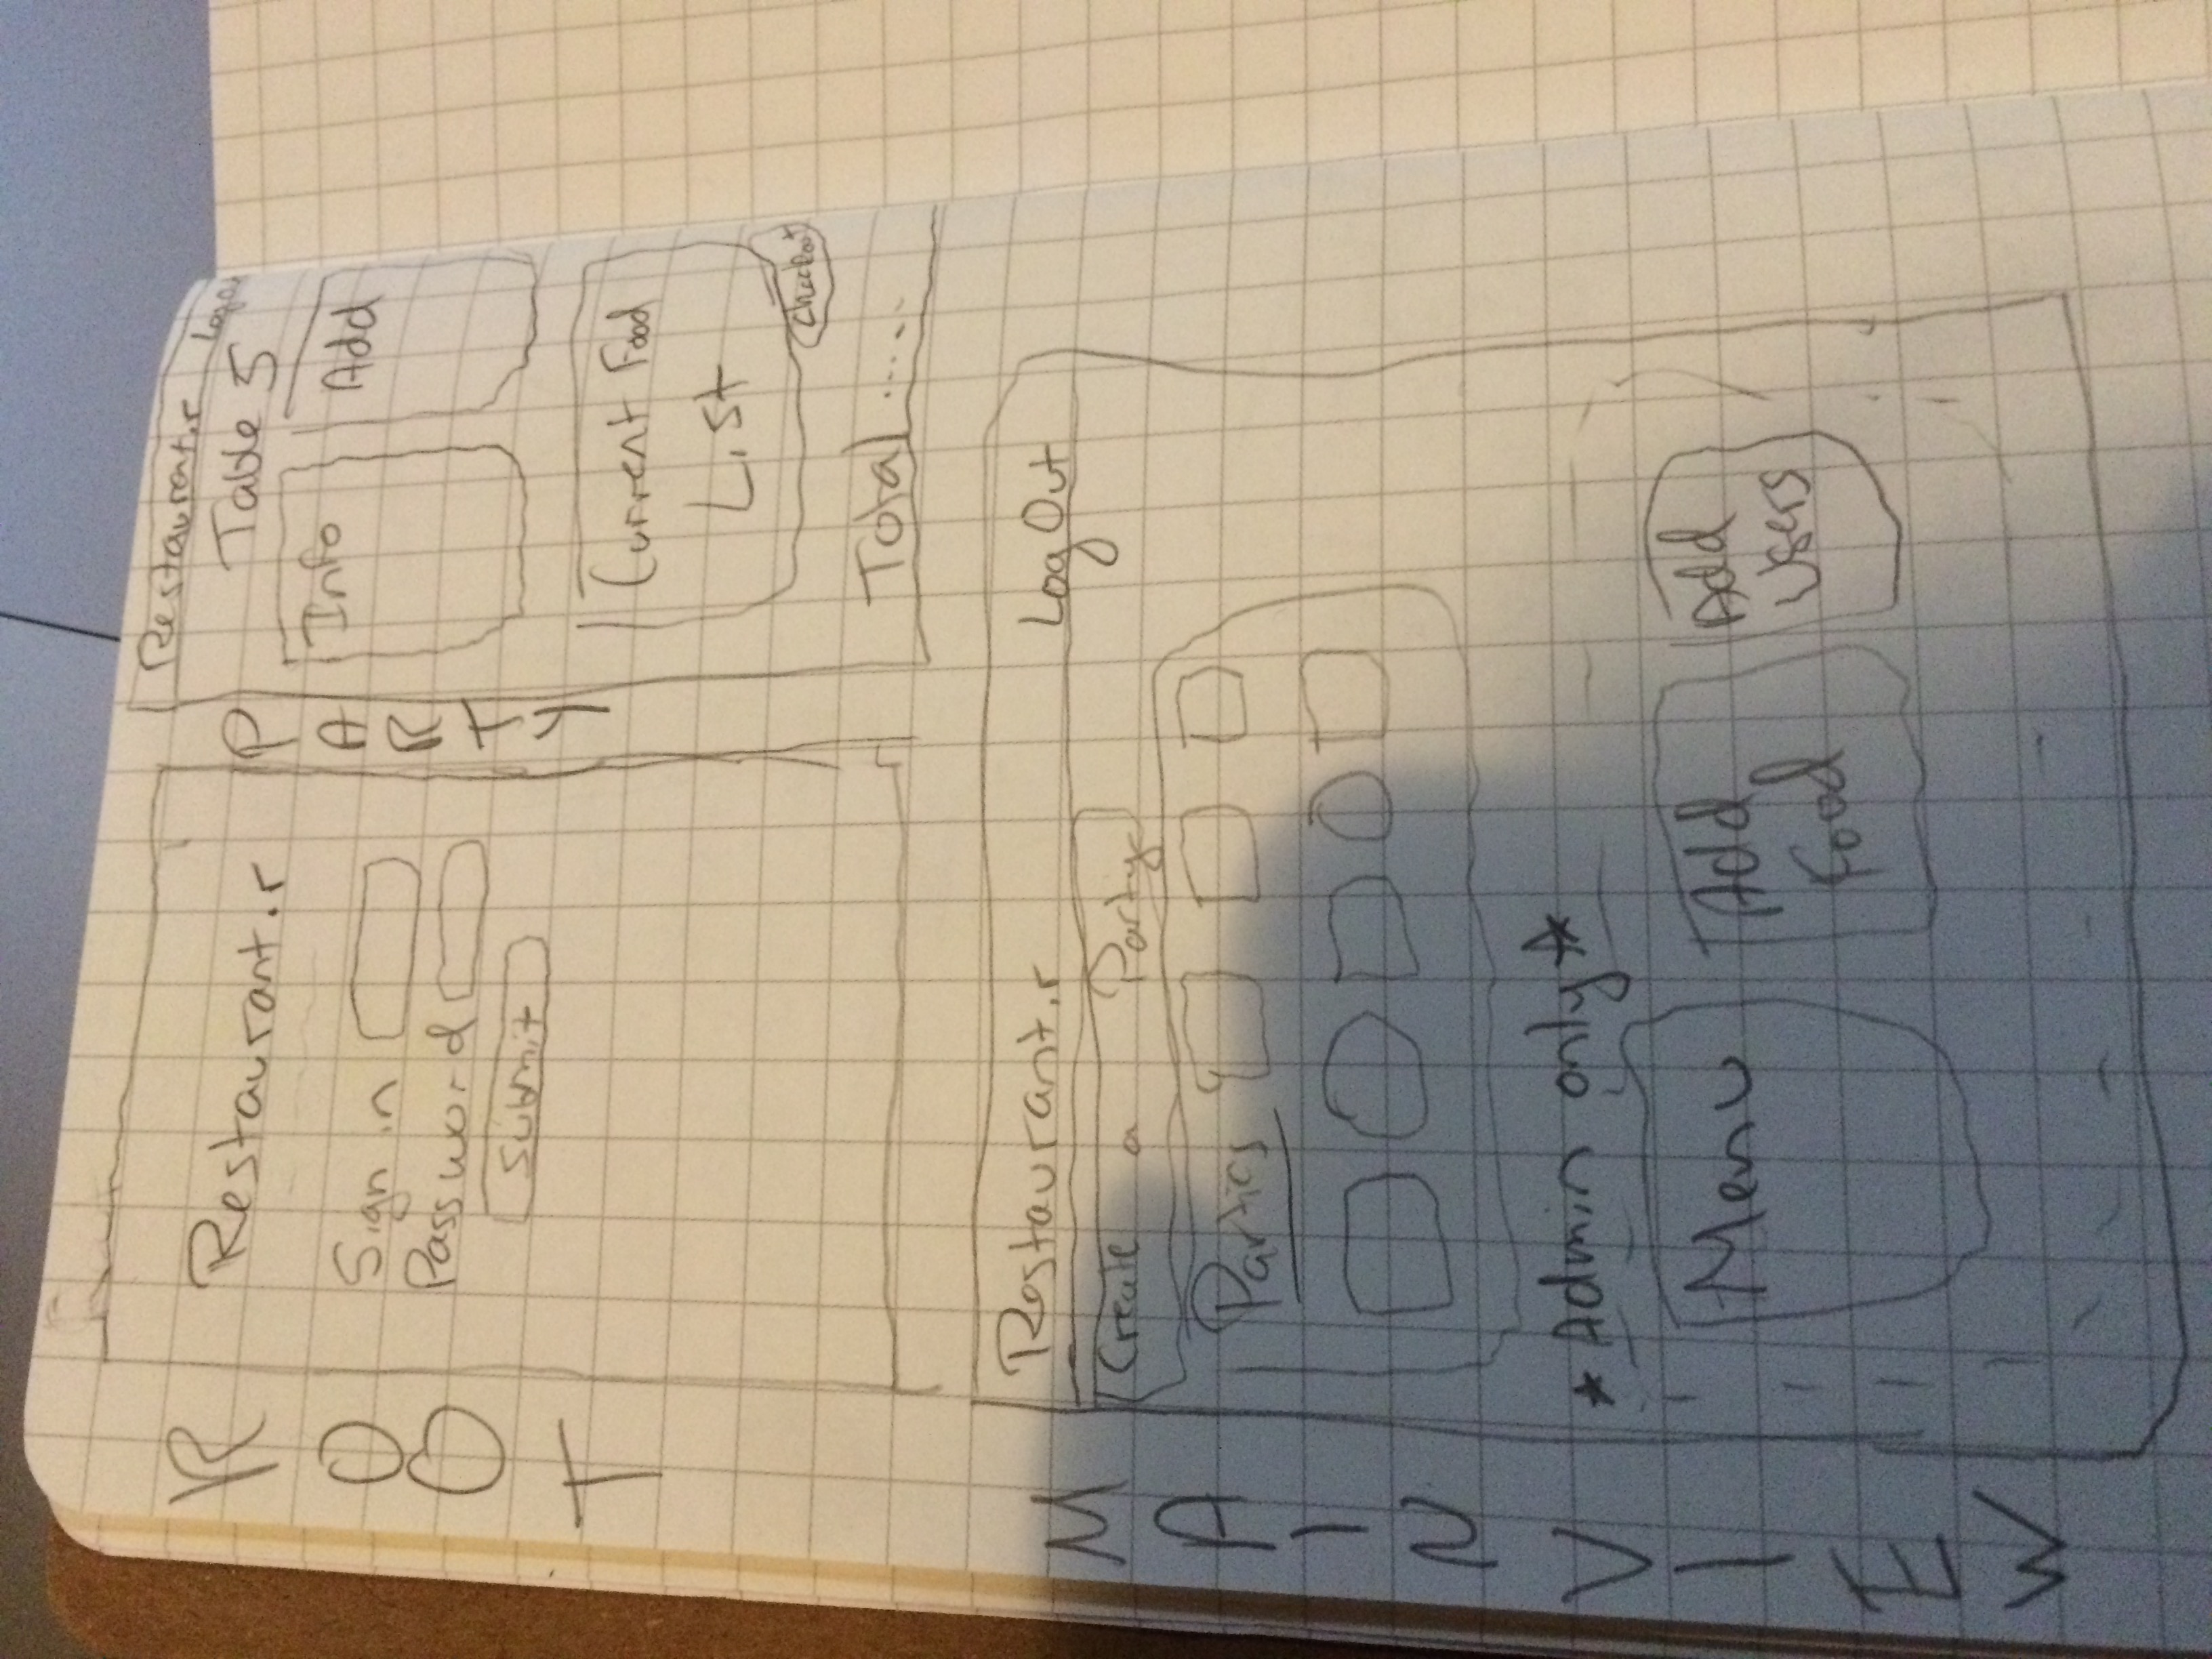 ROOT
Restaurant.r
Sign in
Password
Submit
PARTY
Restaurant.r Log Out
Table 5
Info
Add
Current Food
List
Checkout
Total .....
MAIN VIEW
Restaurant.r Log Out
Create a Party
Parties
*Admin only*
Menu
Add
Food
Add
Users